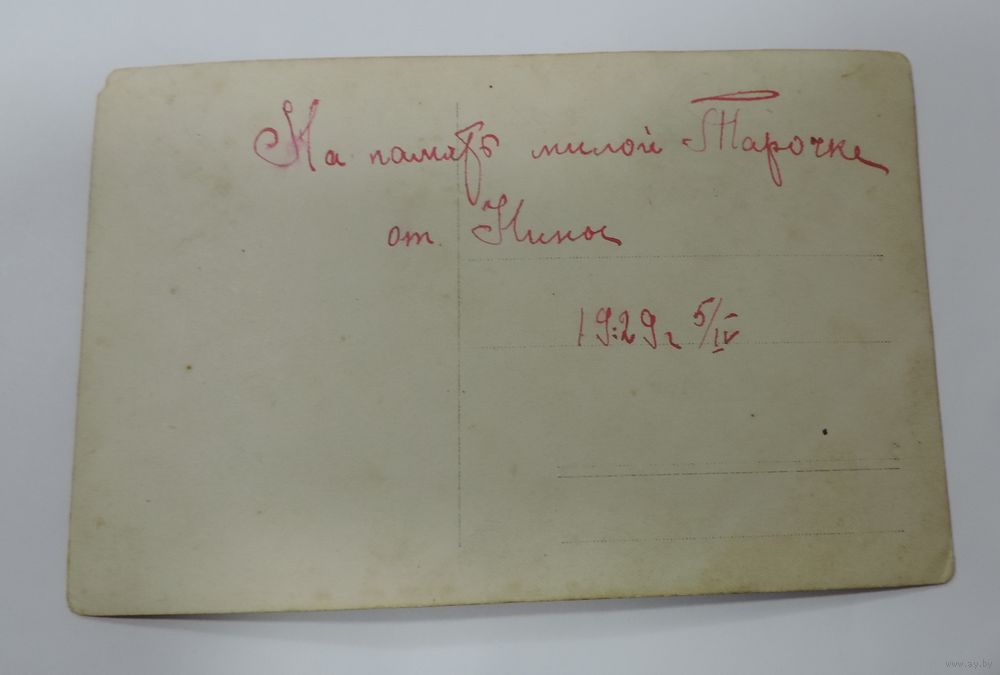 На память милой Тарочке
от Нины
1929 г 5/IV
www.ay.by